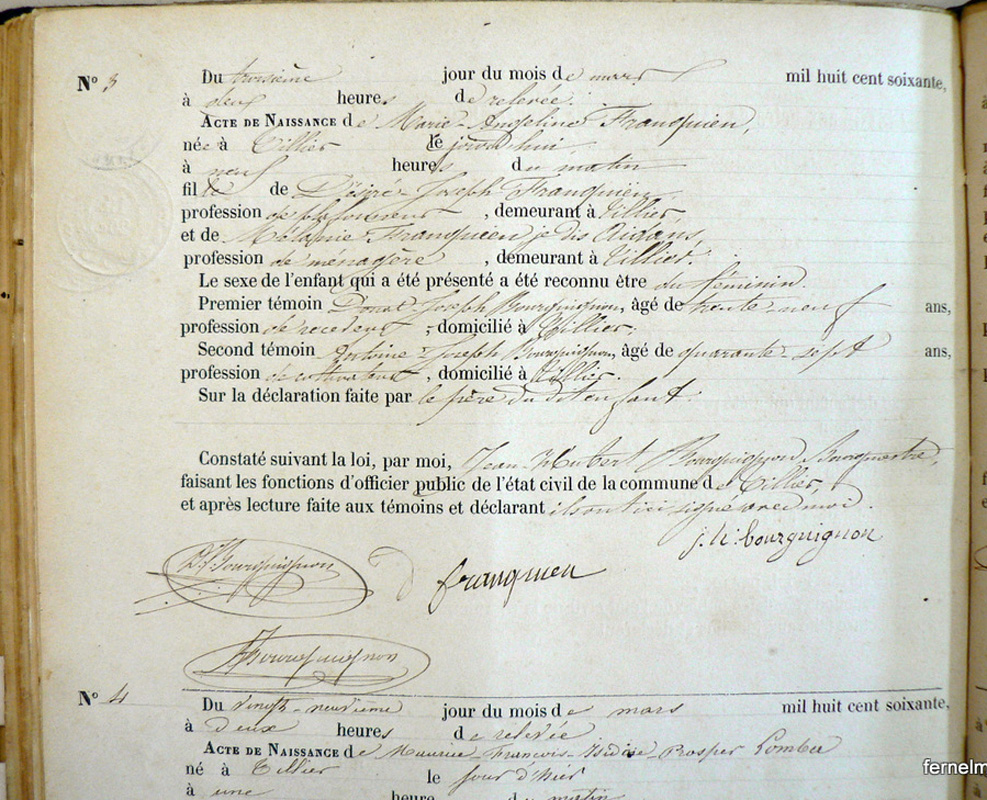 N° 3 Du troisième jour du mois de mars mil huit cent soixante,
à deux heures de relevée.
ACTE DE NAISSANCE de Marie-Angeline Franquien,
née à Tillier le jourd'hui
à neuf heures du matin
fille de Désiré-Joseph Franquien,
profession de plafonneur, demeurant à Tillier,
et de Mélanie Franquien je dis Aidans,
profession de ménagère, demeurant à Tillier.
Le sexe de l'enfant qui a été présenté a été reconnu être du féminin.
Premier témoin Donat-Joseph Bourguignon, âgé de trente-neuf ans,
profession de receveur, domicilié à Tillier.
Second témoin Antoine-Joseph Bourguignon, âgé de quarante-sept ans,
profession de cultivateur, domicilié à Tillier.
Sur la déclaration faite par le père du dit enfant.
Constaté suivant la loi, par moi, Jean-Hubert Bourguignon Bourgmestre,
faisant les fonctions d'officier public de l'état civil de la commune de Tillier,
et après lecture faite aux témoins et déclarant ils ont ici signé avec moi.
j. h. bourguignon
D J Bourguignon D franquien
Bourguignon
N° 4 Du vingt-neuvième jour du mois de mars mil huit cent soixante,
à deux heures de relevée
ACTE DE NAISSANCE de Maurice-François-Prosper
né à Tillier le jour d'hier
fernelm
à une heure du matin